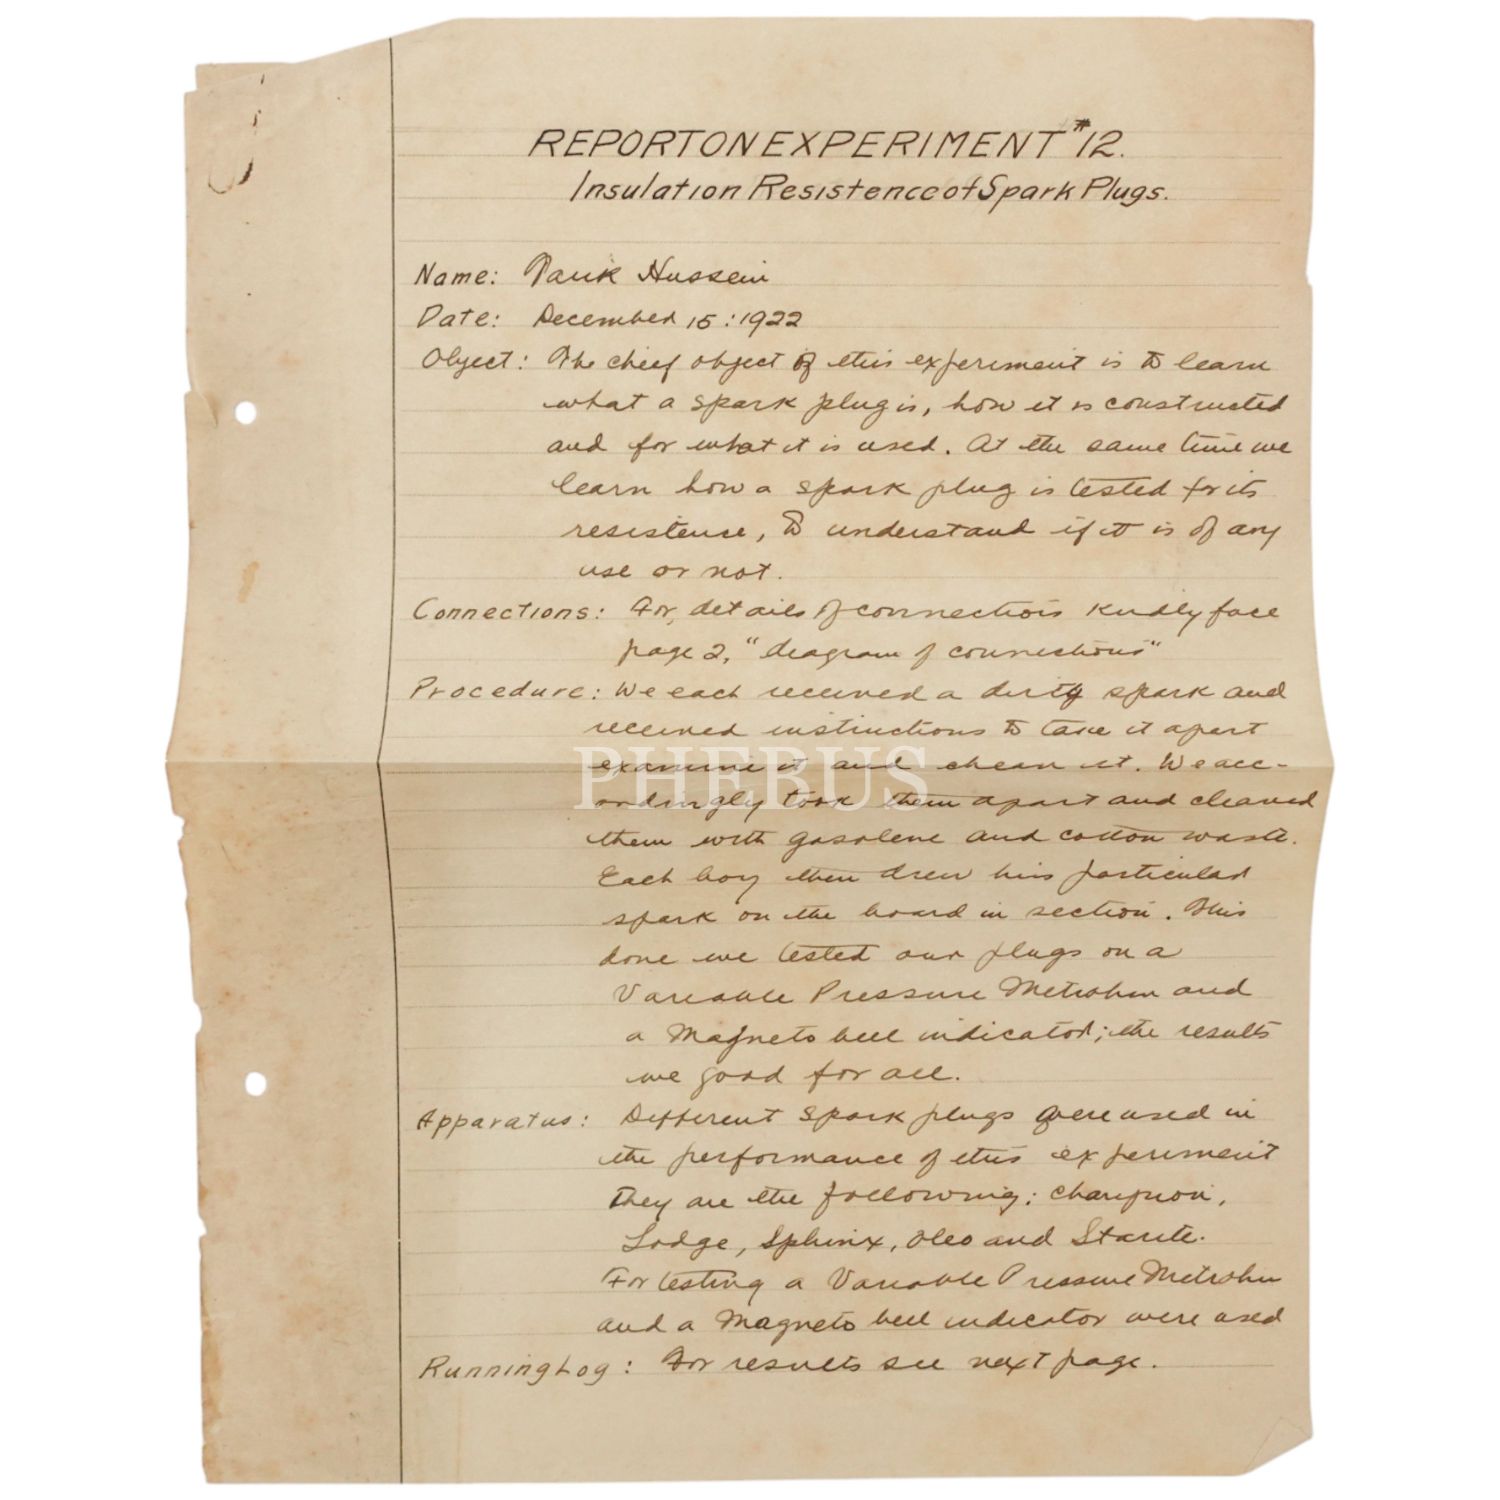 REPORT ON EXPERIMENT #12.
Insulation Resistence of Spark Plugs.
Name: Tarik Hussein
Date: December 15: 1922
Object: The chief object of this experiment is to learn
what a spark plug is, how it is constructed
and for what it is used. At the same time we
learn how a spark plug is tested for its
resistense, to understand if it is of any
use or not.
Connections: For, details of connections kindly face
page 2, "diagram of connections"
Procedure: We each received a dirty spark and
received instructions to take it apart
examine it and clean it. We acc-
PHEBUS
ordingly took them apart and cleaned
them with gasolene and cotton waste.
Each boy then drew his particular
spark on the board in section. This
done we tested our plugs on a
Variable Pressure Metrohm and
a Magneto bell indicator; the results
we good for all.
Apparatus: Different spark plugs were used in
the performance of this experiment
they are the following: Champion,
Lodge, Sphinx, Oleo and
For testing a Variable Pressure Metrohm
and a Magneto bell indicator were used
Running Log: For results see next page.